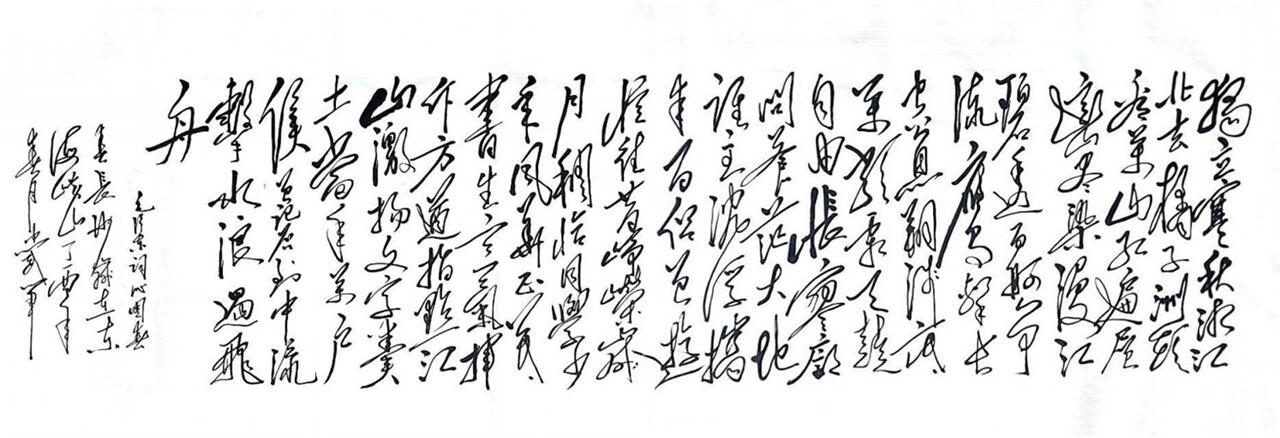 独立寒秋湘江
北去橘子洲头
看万山红遍层
林尽染漫江
碧透百舸争
流鹰击长
空鱼翔浅底
万类霜天竞
自由怅寥廓
问苍茫大地
谁主沉浮携
来百侣曾游
忆往昔峥嵘岁
月稠恰同学少
年风华正茂
书生意气挥
斥方遒指点江
山激扬文字粪
土当年万户
侯曾记否到中流
擊水浪遏飞
舟
毛泽东词沁园春
長沙
山丁酉年
春月